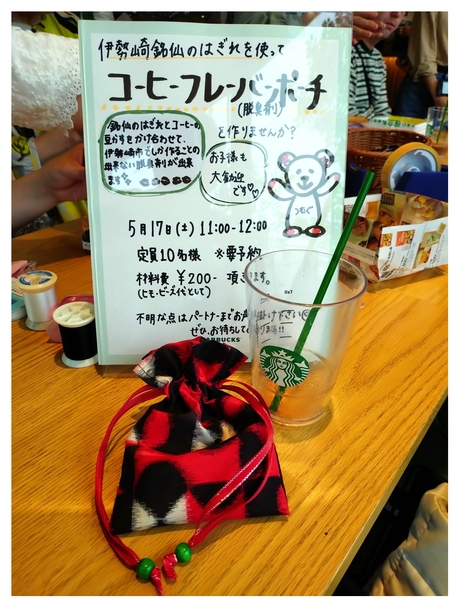 伊勢崎銘仙のはぎれを使って
コーヒーフレーバーポーチ
(脱臭剤)
を作りませんか?
銘仙のはぎれとコーヒーの
豆かすをかけ合わせて、
伊勢崎市でしか作ることの
出来ない脱臭剤が出来
ます
お子様も
大歓迎
です♡♡
つむぐ
5月17日(土) 11:00-12:00
定員10名様 ※要予約
材料費 ¥200- 頂きます。
(ヒモ・ビーズ代として)
不明な点はパートナーまでお声掛け下さい
ぜひ、お待ちしております!!
STARBUCKS